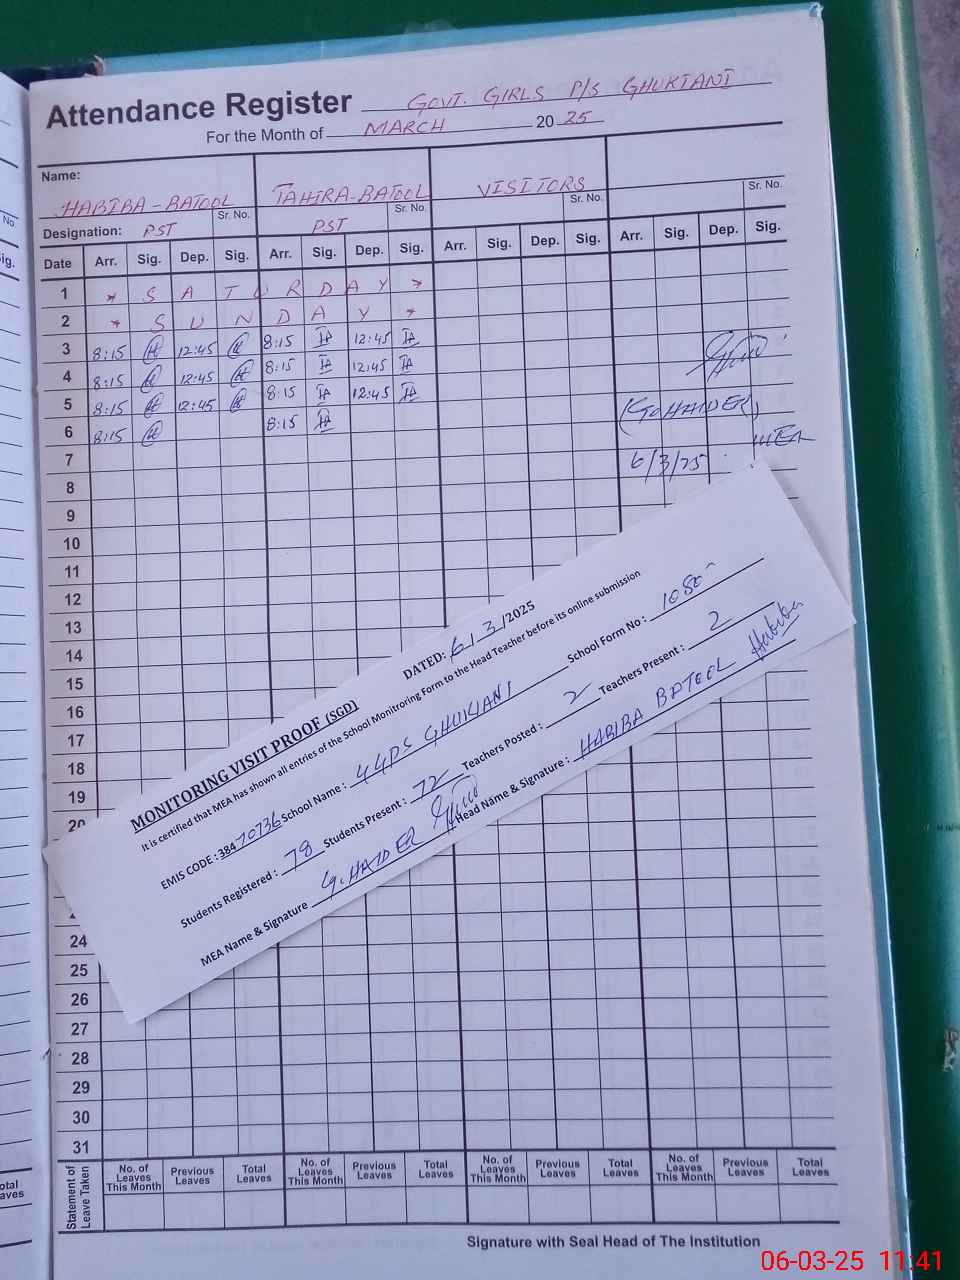 Attendance Register GOVT. GIRLS P/S GHUKIANI
For the Month of MARCH 2025
Name: HABIBA-BATOOL TAHIRA-BATOOL VISITORS
Sr. No. Sr. No. Sr. No. Sr. No.
Designation: PST PST
Date Arr. Sig. Dep. Sig. Arr. Sig. Dep. Sig. Arr. Sig. Dep. Sig. Arr. Sig. Dep. Sig.
1 * SATURDAY *
2 * SUNDAY *
3 8:15 12:45 8:15 12:45
4 8:15 12:45 8:15 12:45
5 8:15 12:45 8:15 12:45
(G. HAIDER)
6 8:15 8:15
MEA
7 6/3/25
8
9
10
11
12
13
14
15
16
17
18
19
20
MONITORING VISIT PROOF (SGD) DATED: 6/3/2025
It is certified that MEA has shown all entries of the School Monitroring Form to the Head Teacher before its online submission
EMIS CODE: 38470736 School Name: GGPS GHUKIANI School Form No: 1080
Students Registered: 78 Students Present: 72 Teachers Posted: 2 Teachers Present: 2
MEA Name & Signature G. HAIDER Head Name & Signature: HABIBA BATOOL Habiba
24
25
26
27
28
29
30
31
Statement of Leave Taken
No. of Leaves This Month Previous Leaves Total Leaves No. of Leaves This Month Previous Leaves Total Leaves No. of Leaves This Month Previous Leaves Total Leaves No. of Leaves This Month Previous Leaves Total Leaves
Signature with Seal Head of The Institution
06-03-25 11:41